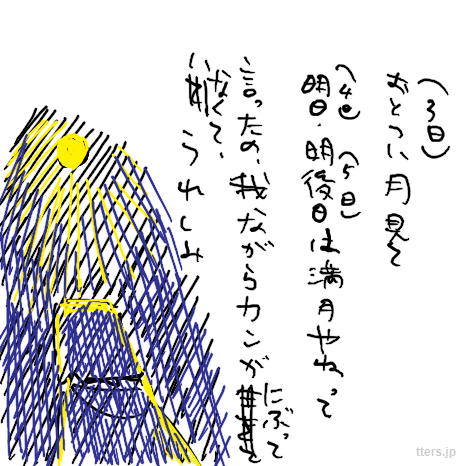 （3日）
おとつい、月見て
（4日）（5日）
明日・明後日は満月やねって
言ったの、我ながらカンが
にぶって
いなくて、
うれしみ
tters.jp